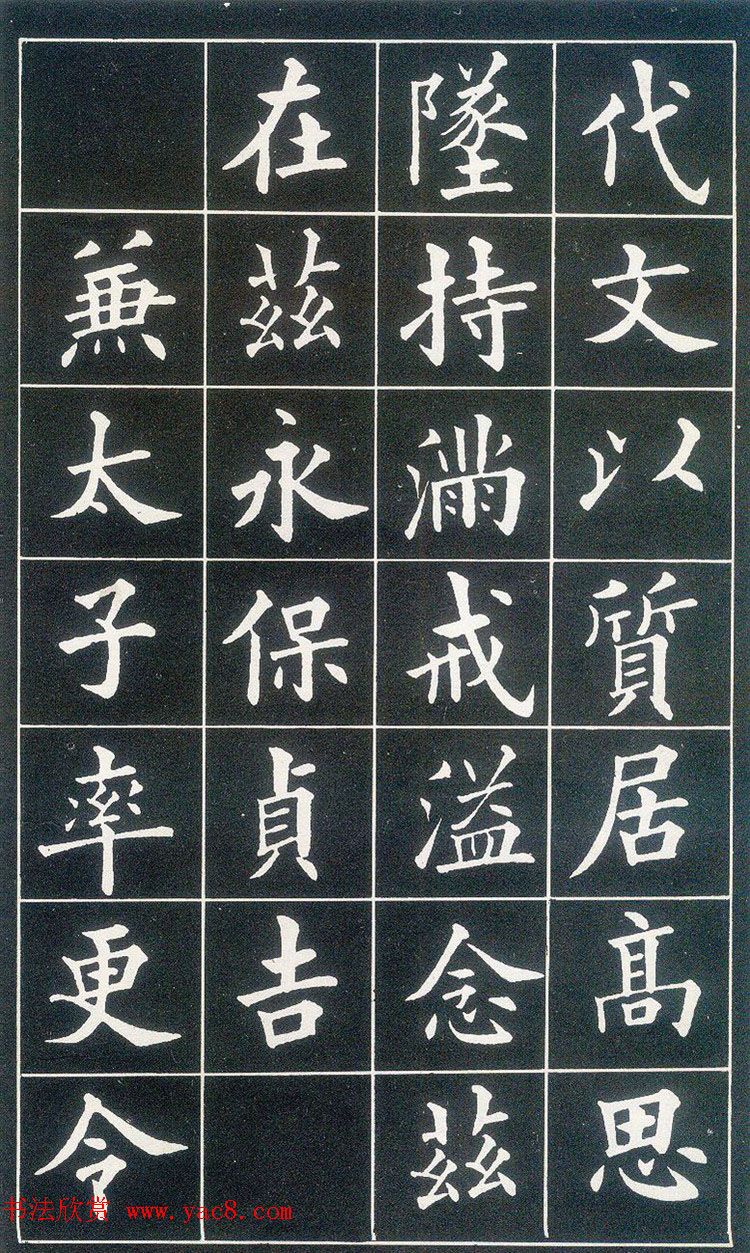 代文以質居髙思
墜持滿戒溢念茲
在茲永保貞吉
兼太子率更令
书法欣赏 www.yac8.com